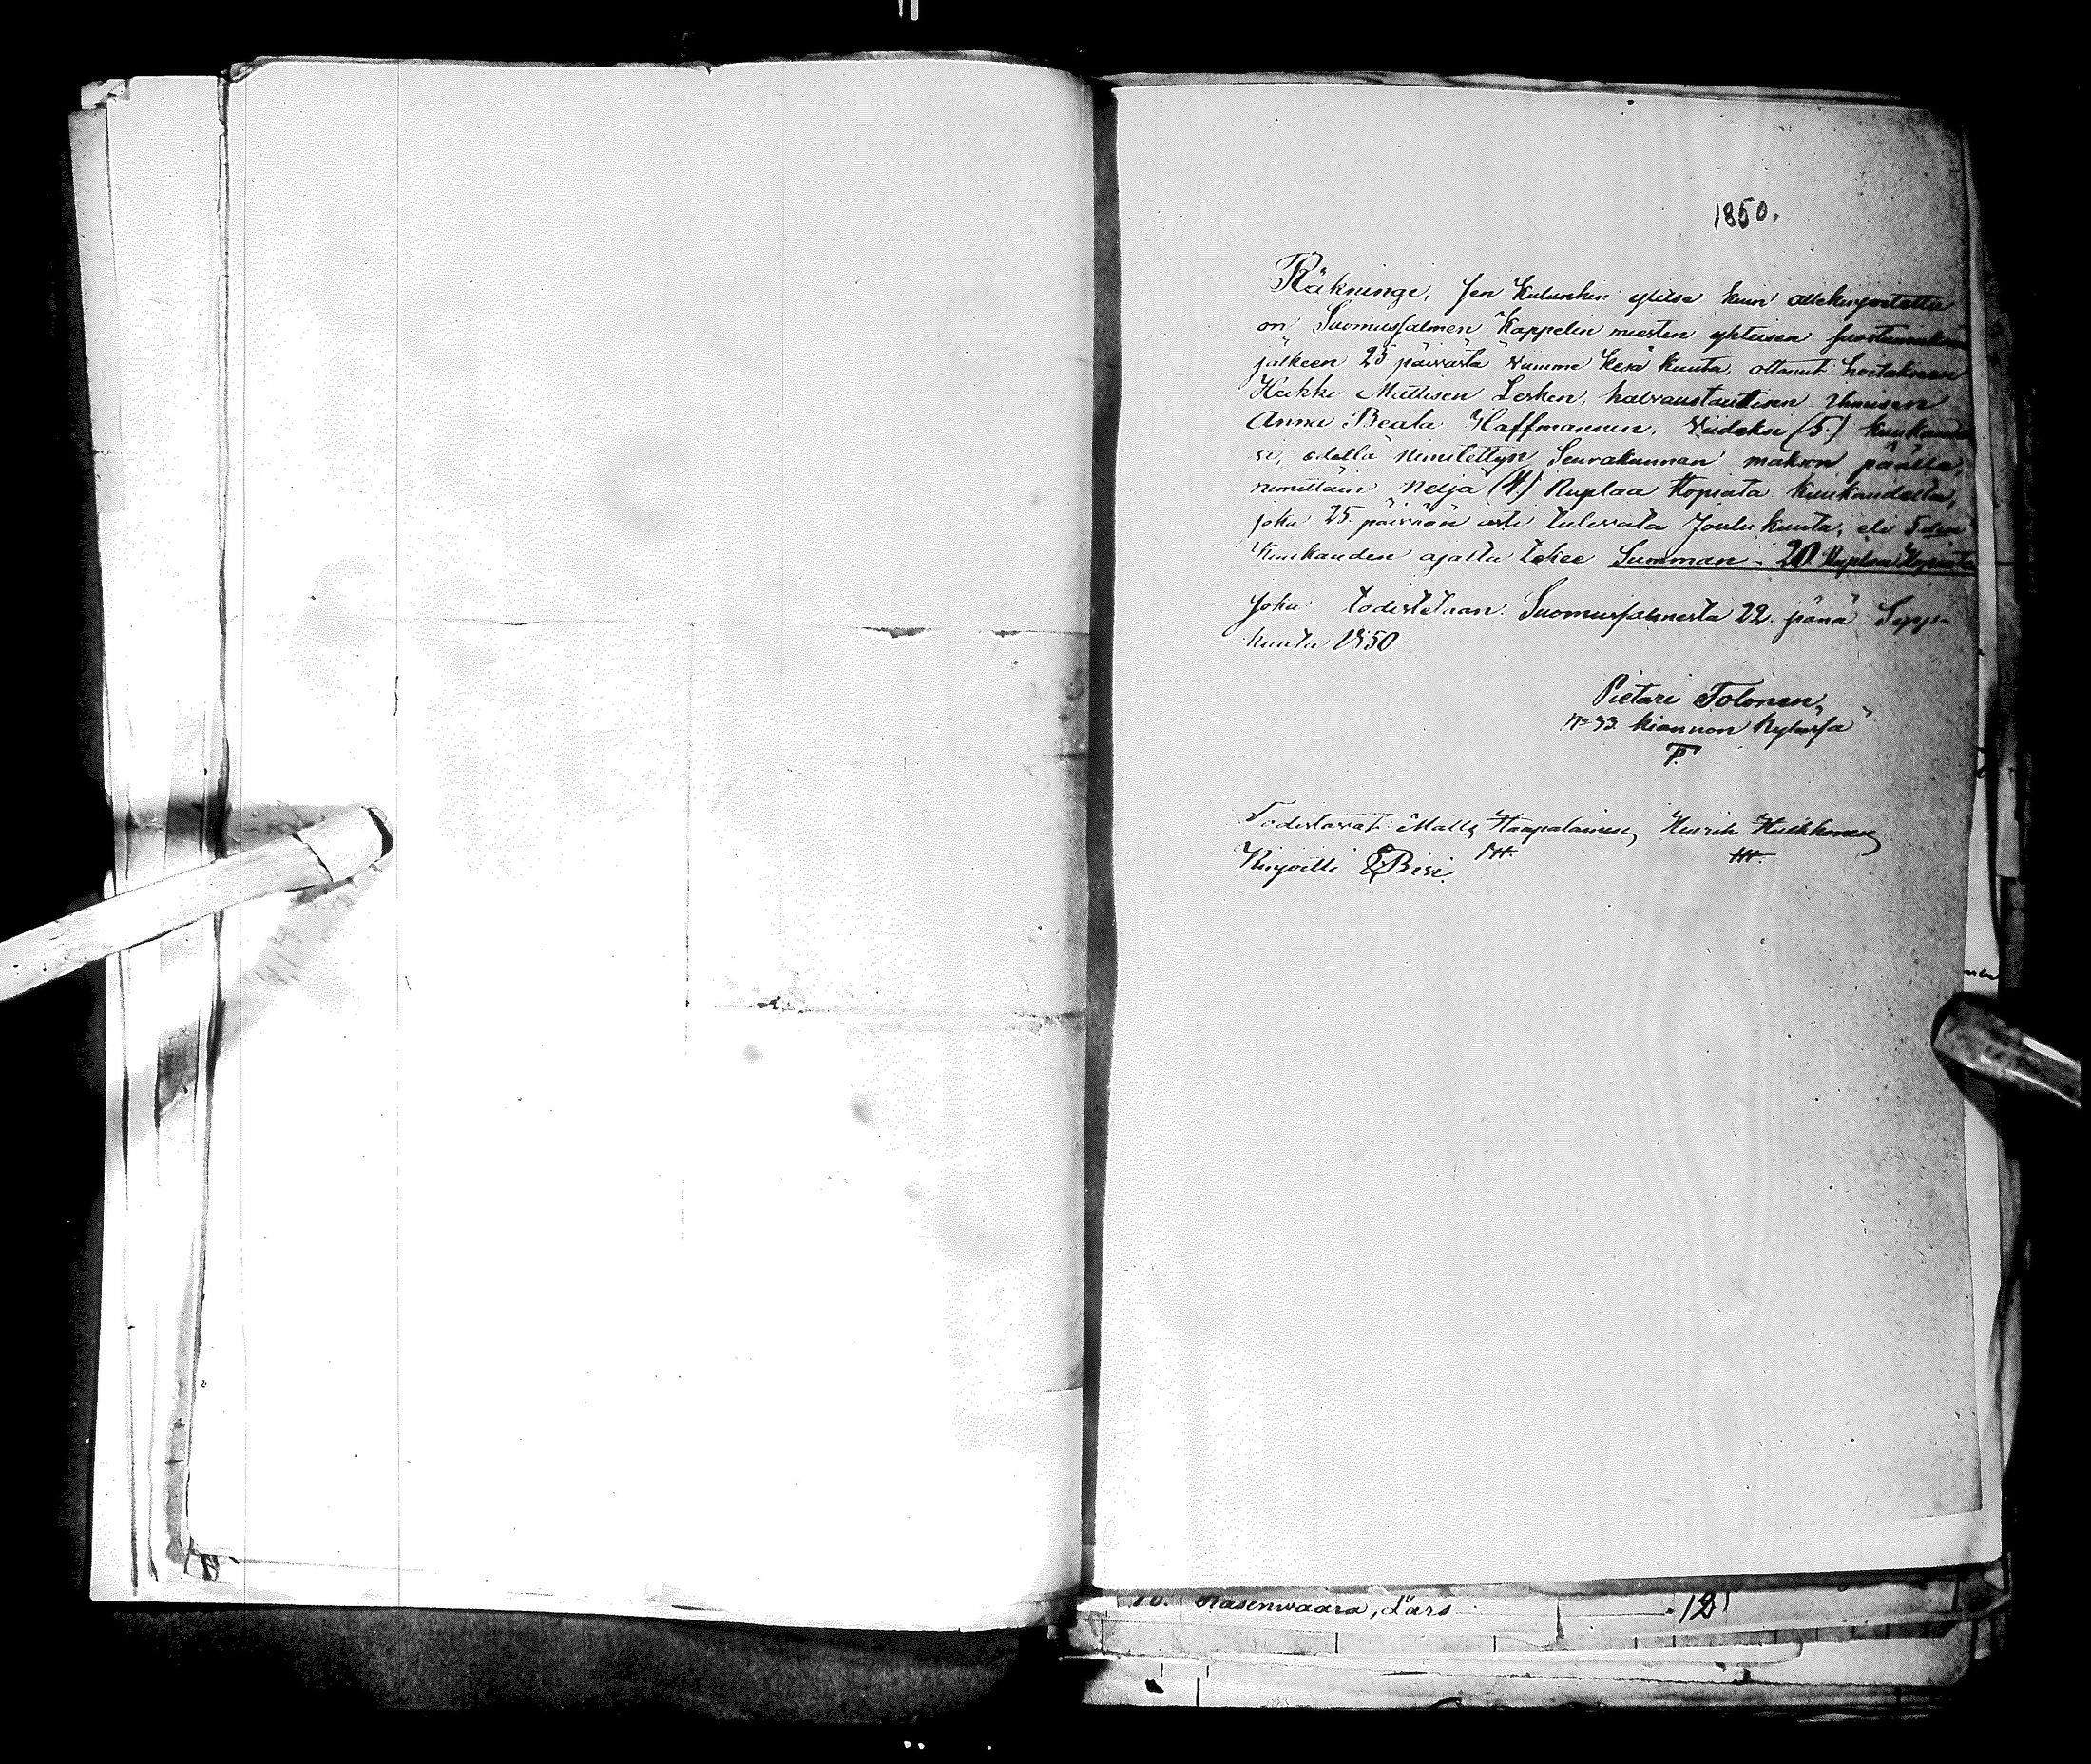 1850.
Räkninge, sen kulunkin ylitse kuin allekirjoitettu
on Suomussalmen Kappelin miesten yhteisen suostumuksen
jälkeen 25 päivästä viimme Kesä kuuta, ottanut hoitakseen
Heikki Mattisen Lesken, halvaustautisen Ihmisen
Anna Beata Haffmannin, Viideksi (5.) kuukaude
xi, edellä nimitettyn Seurakunnan makson päälle,
nimittäin Neljä (4) Ruplaa Hopiata kuukaudelta,
joka 25. päivään asti tulevata Joulu kuuta, eli 5den
kuukauden ajalta tekee Summan - 20 Ruplaa Hopiata
Joka todistetaan. Suomussalmesta 22. pänä Syys-
kuuta 1850.
Pietari Tolonen,
No 33 kiannon kylässä
P.T.
Todistavat: Matts Haapalainen, Henrik Heikkinen,
MH. HH.
Kirjoitti E Bisi.
10. Rasenwaara, Lars 12